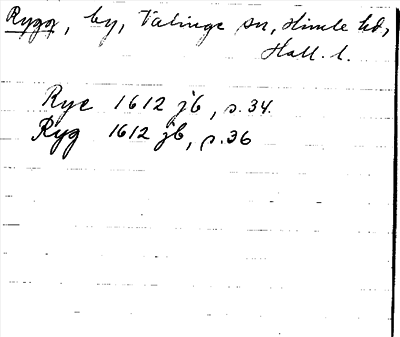 Rygg, by, Valinge sn, Himle hd,
Hall. l.
Rye 1612 jb, s. 34.
Ryg 1612 jb, s. 36